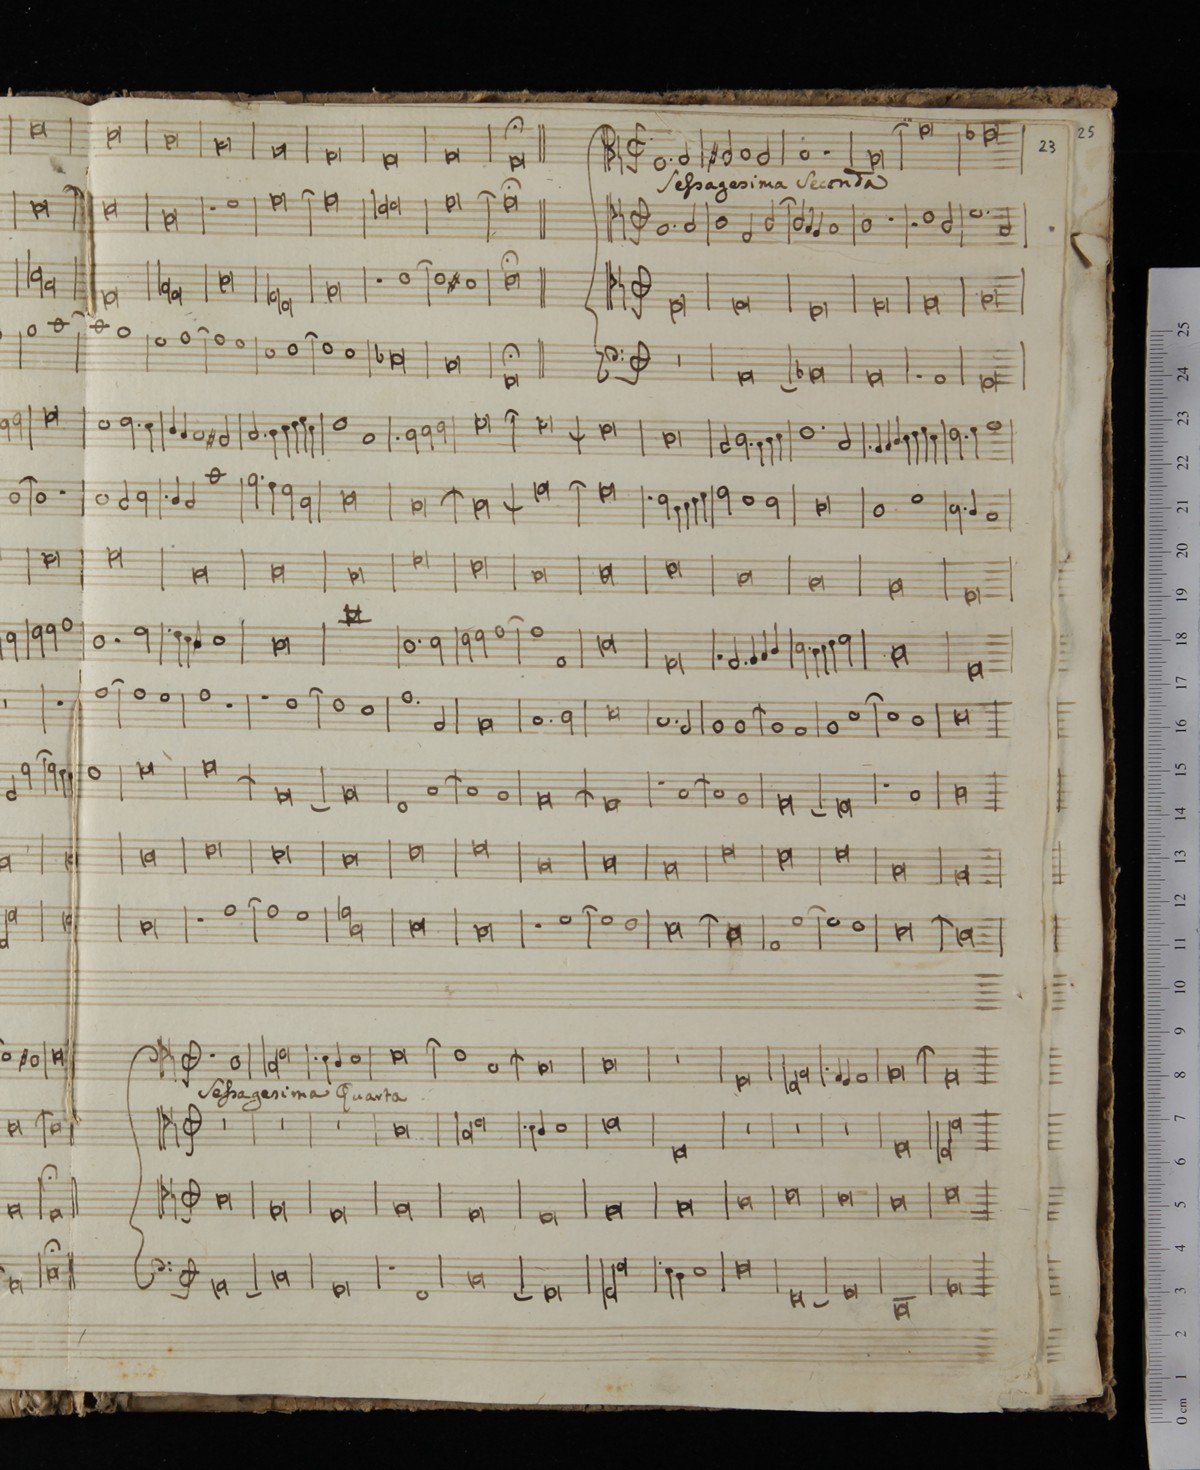 25
23
Sessagesima Seconda
Sessagesima Quarta
25
24
23
22
21
20
19
18
17
16
15
14
13
12
11
10
9
8
7
6
5
4
3
2
1
0 cm